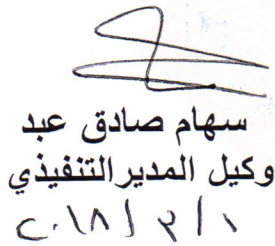 سهام صادق عبد
وكيل المدير التنفيذي
٢٠١٨/٣/١